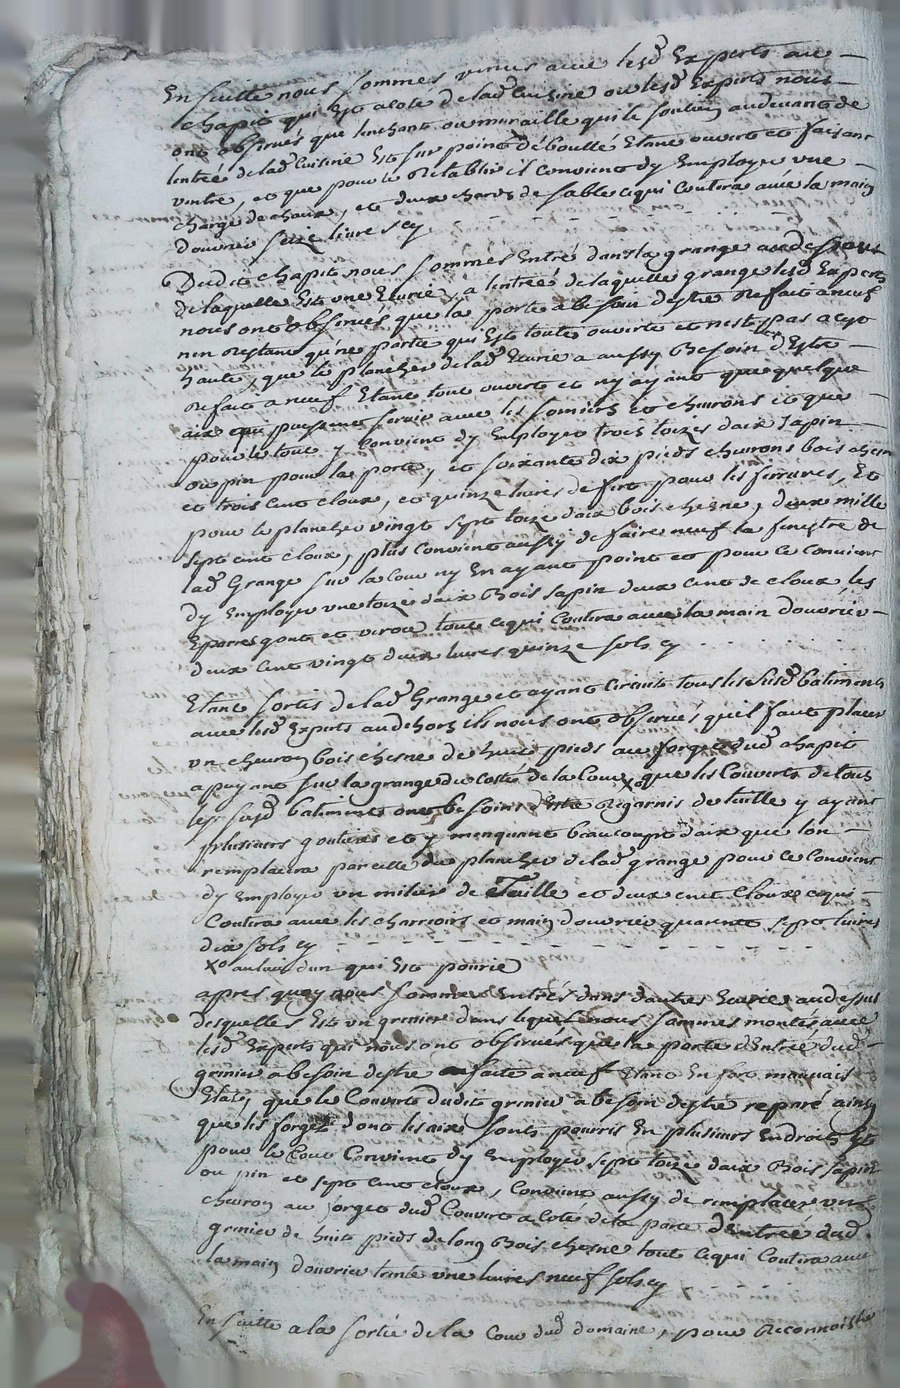 En suitte nous sommes venus avec lesd Experts au
chapit qui Est a coté de lad Cuisine ou lesd Experts nous
ont observés que louchant ou muraille qui le soutien au devant de
lentrée de lad Cuisine Est sur point déboullé Etant ouvert et faisant
ventre, et que pour le Rétablir il convient dy Employer une
charge de chaux, et deux chards de sable ce qui Coutera avec la main
douvrier seize livres cy
Dudit chapit nous sommes Entré dans la grange au dessous
de laquelle Est une Ecurie, a lentrée de laquelle grange lesd Experts
nous ont observés que la porte a besoin destre Refaite a neuf
nen Restant qune partie qui Est toute ouverte et nest pas a cept
haute, que le plancher de lad Ecurie a aussy Besoin dEstre
Refait a neuf Etant tout ouvert et ny ayant que quelque
aix qui puissent servir avec les somiers et chevrons et que
pour le tout y Convient dy Employer trois toizes daix sapin
ou pin pour la porte, et soixante dix pieds chevrons bois chene
et trois cent cloux, et quinze livres de fert pour les ferrures, Et
pour le plancher vingt sept toize daix bois chesne, deux mille
sept cent cloux, plus Convient aussy de faire neuf la fenestre de
lad Grange sur la Cour ny En ayant point et pour ce Convient
dy Employer une toize daix Bois sapin deux Cent de cloux, les
Epares gont et verou tout ce qui Coutera avec la main douvrier
deux Cent vingt deux livres quinze sols cy
Etant sortis de lad Grange et ayant Circuit tous les susd batiments
avec lesd Experts au dehors ils nous ont observés quil faut placer
un chevron bois chesne de huit pieds au forget dud chapit
apuyant sur la grange du Costé de la Cour, que les Couverts de tous
les susd batiments ont besoins dEstre Regarnis de tuille y ayant
plusieurs goutieres et y menquant beaucoupt daix que lon
remplacera par celle du plancher de lad grange pour ce Convient
dy Employer un milier de Tuille et deux cent Cloux ce qui
Coutera avec les charrois et main douvrier quarente sept livres
dix sols cy
Xo aulieu dun qui Est pourie
appres quoy nous sommes Entrés dans dautres Ecurie au dessus
desquelles Est un grenier dans lequel nous sommes montés avec
lesd Experts qui nous ont observés que la porte dEntrée dud
grenier a besoin destre faite a neuf Etant En fort mauvais
Etat, que le Couvert dudit grenier a besoin destre reparé ainsy
que les forget dont les aix sont pourris En plusieurs Endroits Et
pour le tout Convient dy Employer sept toize daix Bois sapin
ou pin et sept cent cloux, Convient aussy de remplacer un
chevron au forget dud Couvert a coté de la porte dEntrée dud
grenier de huit pieds de long Bois chesne tout ce qui Coutera avec
la main douvrier trente une livres neuf sols cy
En suitte a la sortie de la Cour dud domaine, pour Reconnoistre